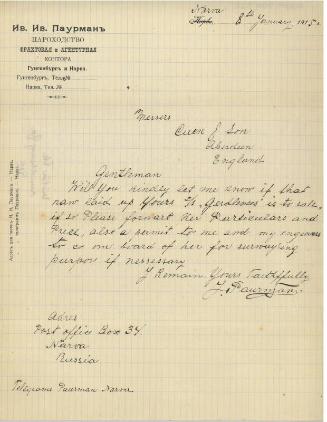 Ив. Ив. Паурманъ
ПАРОХОДСТВО
ФРАХТОВАЯ и АГЕНТУРНАЯ
КОНТОРА
Гунгенбургъ и Нарва.
Гунгенбургъ, Тел. №
Нарва, Тел. №
Narva
8th January 1915
Messrs
& Son
Aberdeen
England
Gentleman
Will You kindly let me know if that
now laid up Yours is to sale,
if so Please forward her Particulars and
Price, also a permit to me and my engineers
to go on board of her for surveying
purpos if nessessary
I Remain Yours Faithfully
J. Paurman
Adres
Post office Box 34
Narva
Russia
Telegrams Paurman Narva